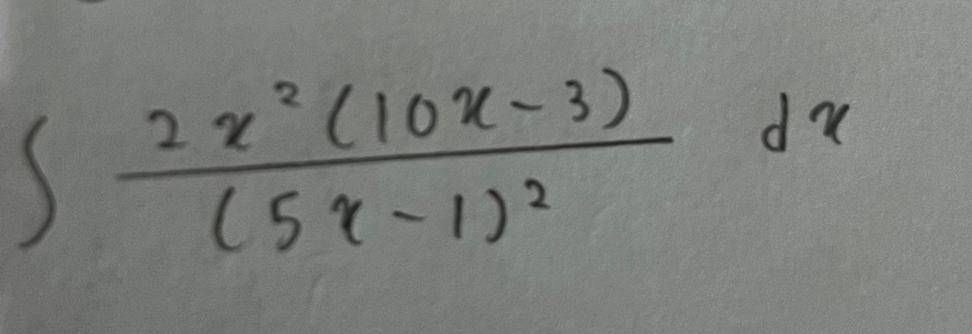 ∫ 2x²(10x-3) / (5x-1)² dx